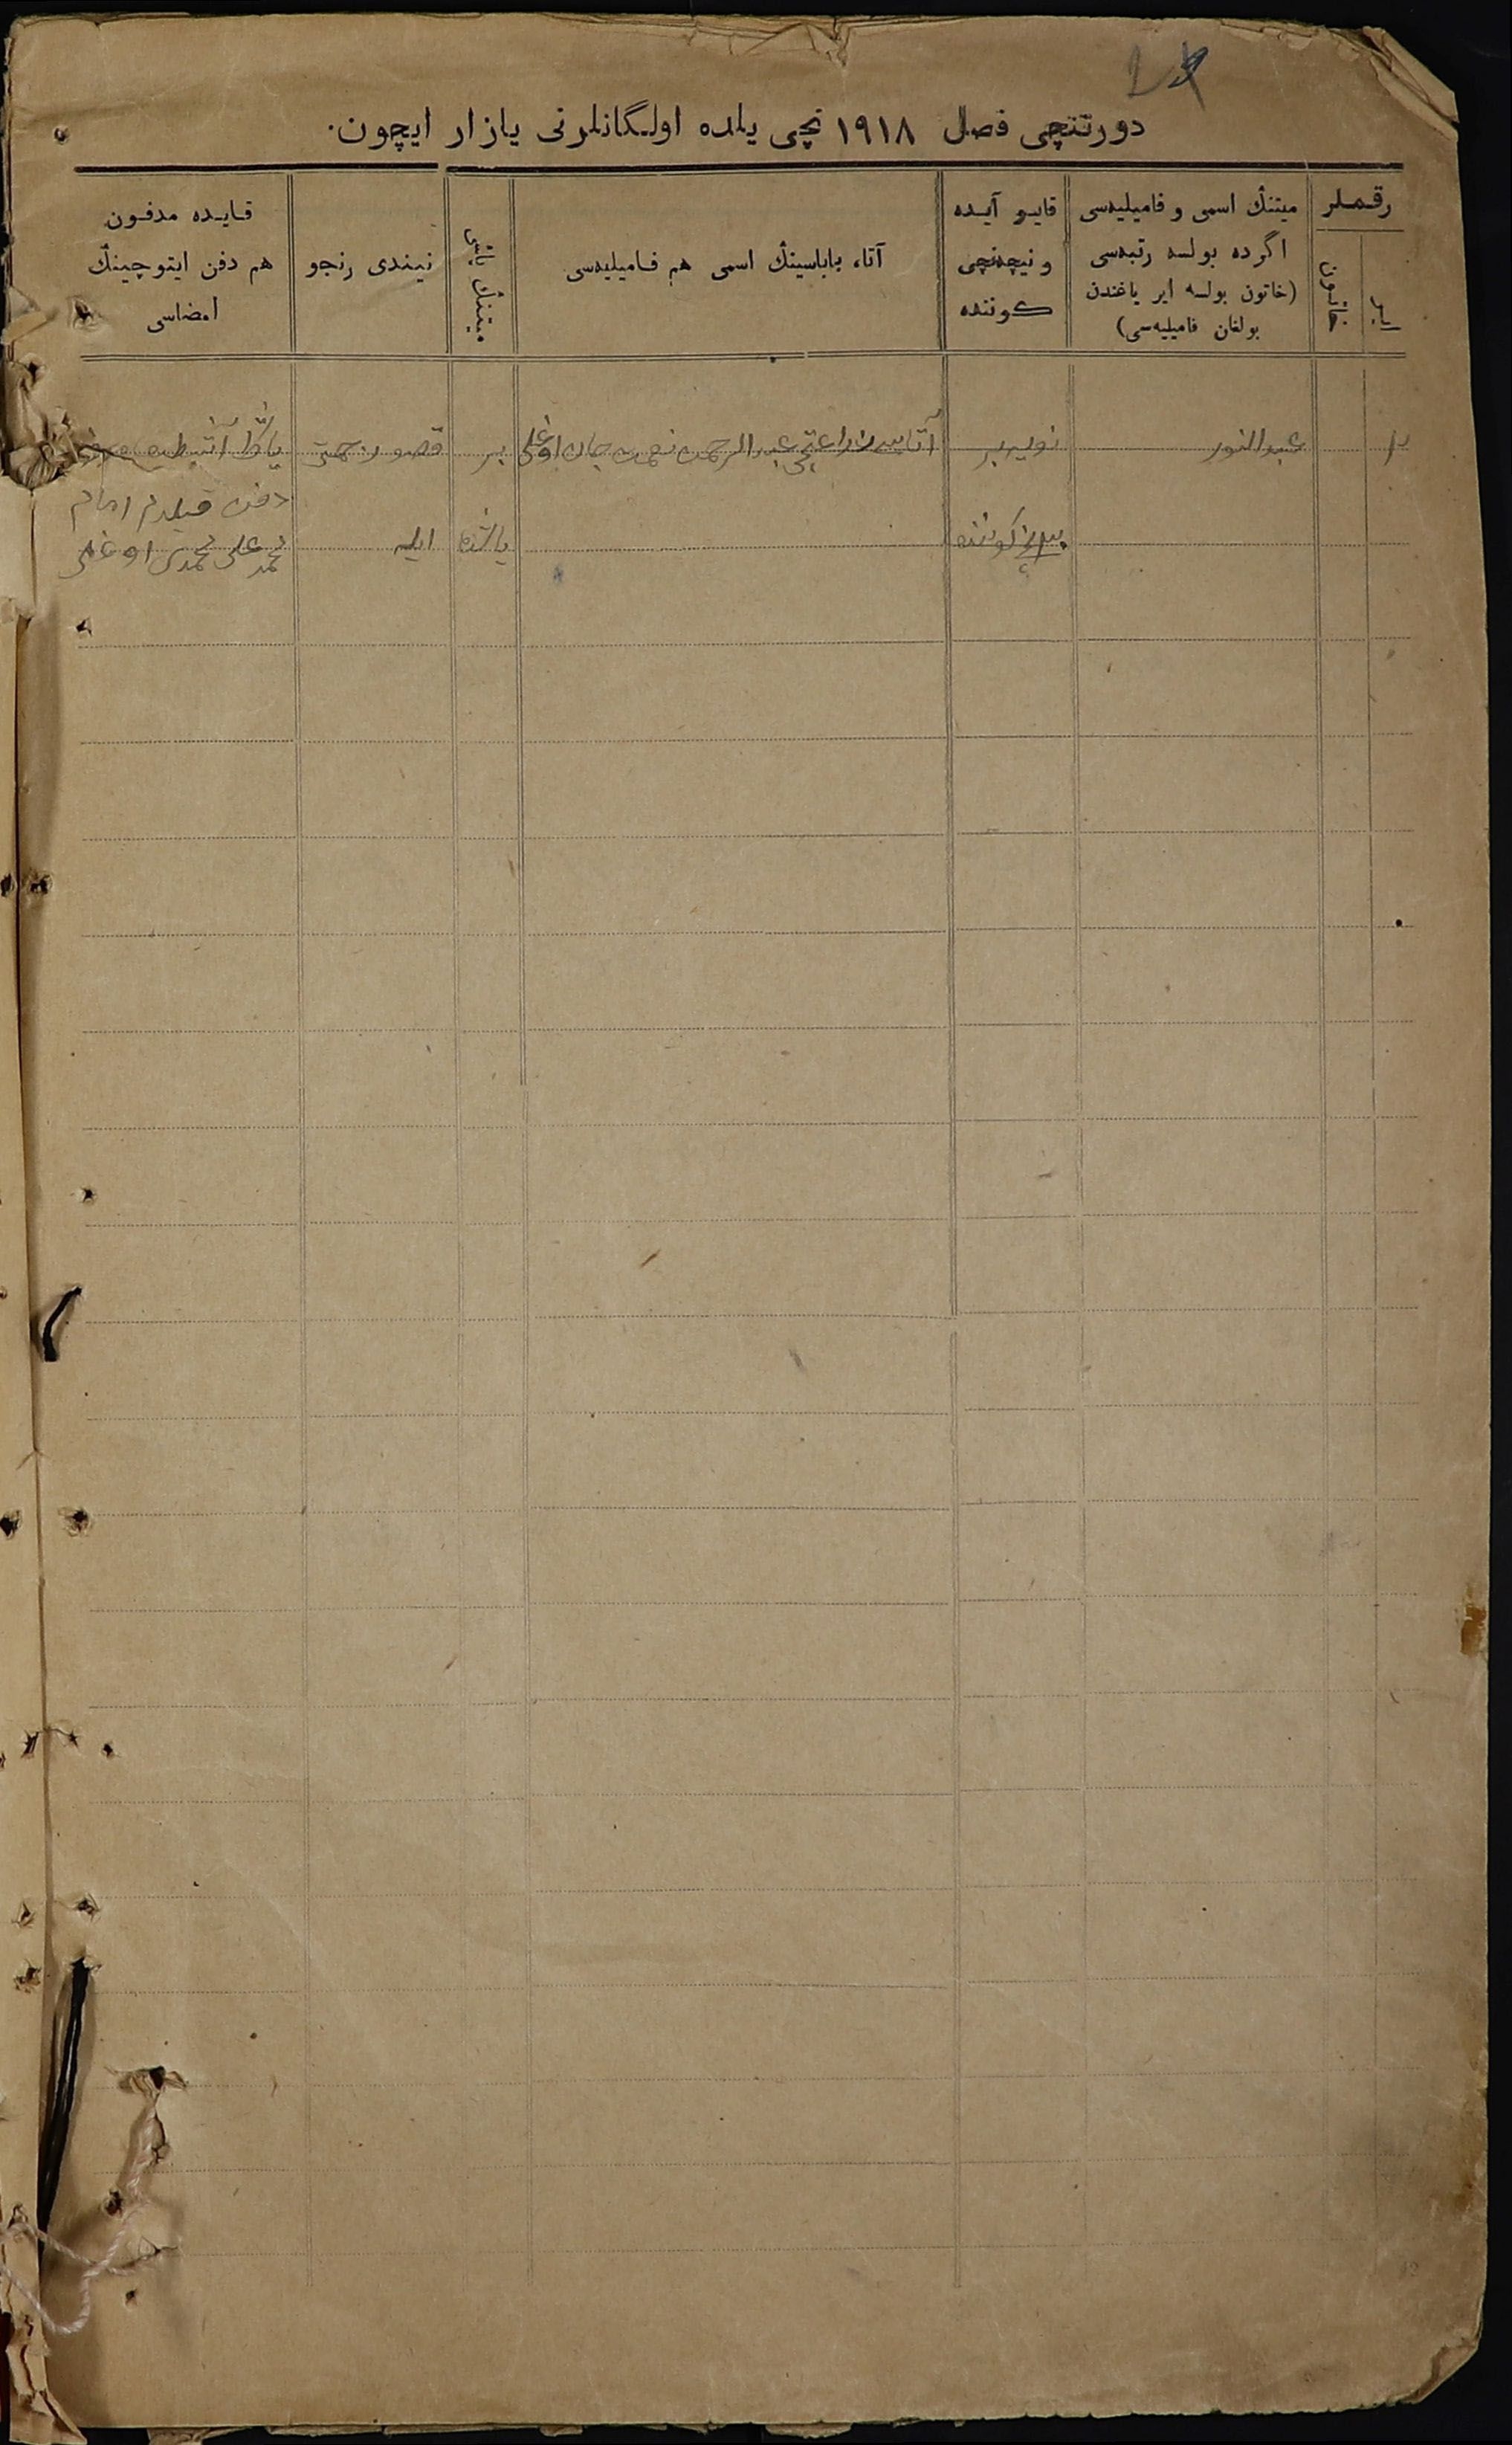 دورتنچی فصل ١٩١٨ نچی یلده اولـگانلرنی یازار ایچون.
رقـملر
ایر
خاتون
میتنڭ اسمی و فامیلیه‌سی
اگر ده بولسه رتبه‌سی
(خاتون بولسه ایر یاغندن
بولغان فامیلیه‌سی)
قایـو آیـده
و نیچه‌نچی
كـوننده
آتاء باباسینڭ اسمی هم فـامیلیه‌سی
میتنڭ یاشی
نیندی رنجو
قـایـده مدفـون
هم دفن ایتوچینڭ
امضاسی
عبد النور
نویبر
آتاسی عبد الرحمن نعمت جان اوغلی
بر
قصور زحمتی
كوننده
یاشنده
ایله
دفن قیلدم امام
محمد علی محمدی اوغلی